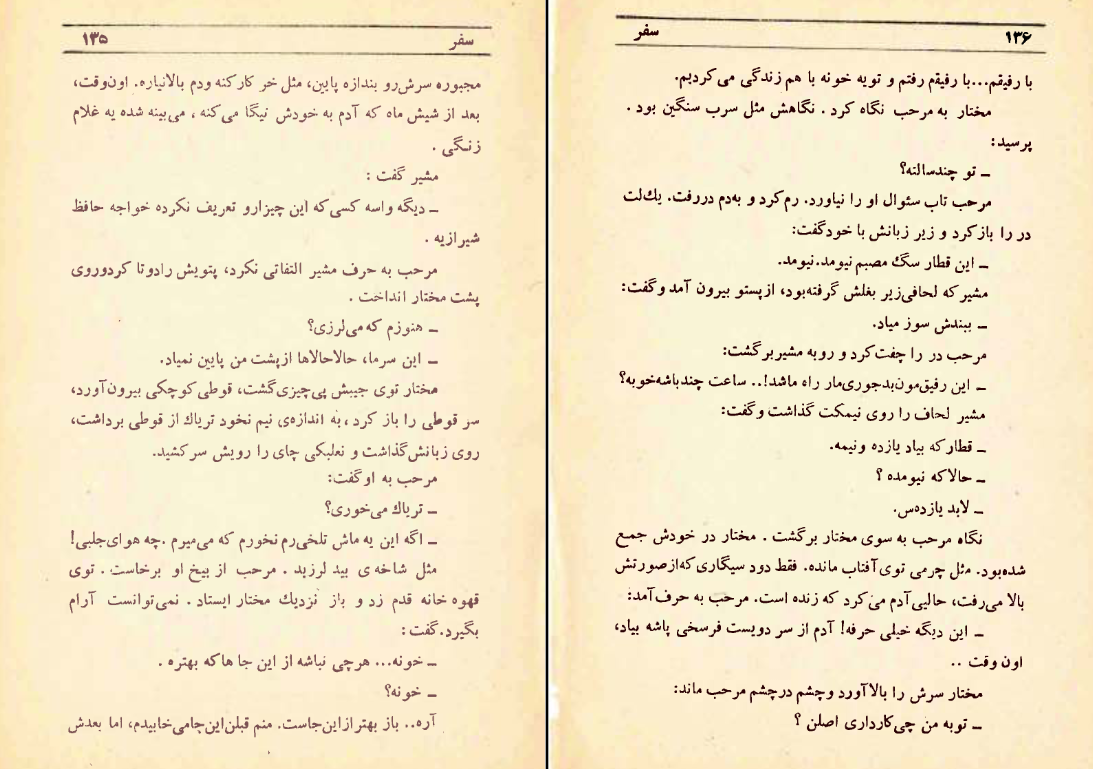 سفر ۱۳۵
مجبوره سرش‌رو بندازه پایین، مثل خر کارکنه ودم بالانیاره. اون‌وقت،
بعد از شیش ماه که آدم به خودش نیگا می‌کنه، می‌بینه شده یه غلام
زنگی .
مشیر گفت :
ـ دیگه واسه کسی‌که این چیزارو تعریف نکرده خواجه حافظ
شیرازیه .
مرحب به حرف مشیر التفاتی نکرد، پتویش رادوتا کردوروی
پشت مختار انداخت .
ـ هنوزم که می‌لرزی؟
ـ این سرما، حالاحالاها ازپشت من پایین نمیاد.
مختار توی جیبش پی‌چیزی‌گشت، قوطی‌کوچکی بیرون‌آورد،
سر قوطی را باز کرد، به اندازه‌ی نیم نخود تریاك از قوطی برداشت،
روی زبانش‌گذاشت و نعلبکی چای را رویش سرکشید.
مرحب به اوگفت:
ـ تریاك می‌خوری؟
ـ اگه این یه ماش تلخی‌رم نخورم که می‌میرم .چه هوای‌جلبی!
مثل شاخه‌ی بید لرزید . مرحب از بیخ او برخاست . توی
قهوه خانه قدم زد و باز نزدیك مختار ایستاد . نمی‌توانست آرام
بگیرد.گفت:
ـ خونه... هرچی نباشه از این جا هاکه بهتره .
ـ خونه؟
آره.. باز بهترازاین‌جاست. منم قبلن‌این‌جامی‌خابیدم، اما بعدش
۱۳۶ سفر
با رفیقم...با رفیقم رفتم و تویه خونه با هم زندگی می‌کردیم.
مختار به مرحب نگاه کرد . نگاهش مثل سرب سنگین بود .
پرسید:
ـ تو چندسالته؟
مرحب تاب سئوال او را نیاورد. رم‌کرد و به‌دم دررفت. یك‌لت
در را بازکرد و زیر زبانش با خودگفت:
ـ این قطار سگ مصبم نیومد.نیومد.
مشیرکه لحافی‌زیر بغلش گرفته‌بود، ازپستو بیرون آمد وگفت:
ـ ببندش سوز میاد.
مرحب در را چفت‌کرد و روبه مشیربرگشت:
ـ این رفیق‌مون‌بدجوری‌مار راه ماشد!.. ساعت چندباشه‌خوبه؟
مشیر لحاف را روی نیمکت گذاشت وگفت:
ـ قطارکه بیاد یازده ونیمه.
ـ حالاکه نیومده ؟
ـ لابد یازده‌س.
نگاه مرحب به سوی مختار برگشت . مختار در خودش جمع
شده‌بود. مثل چرمی توی‌آفتاب مانده. فقط دود سیگاری که‌ازصورتش
بالا می‌رفت، حالیی‌آدم می‌کرد که زنده است. مرحب به حرف‌آمد:
ـ این دیگه خیلی حرفه! آدم از سر دویست فرسخی پاشه بیاد،
اون وقت ..
مختار سرش را بالاآورد وچشم درچشم مرحب ماند:
ـ توبه من چی‌کارداری اصلن ؟